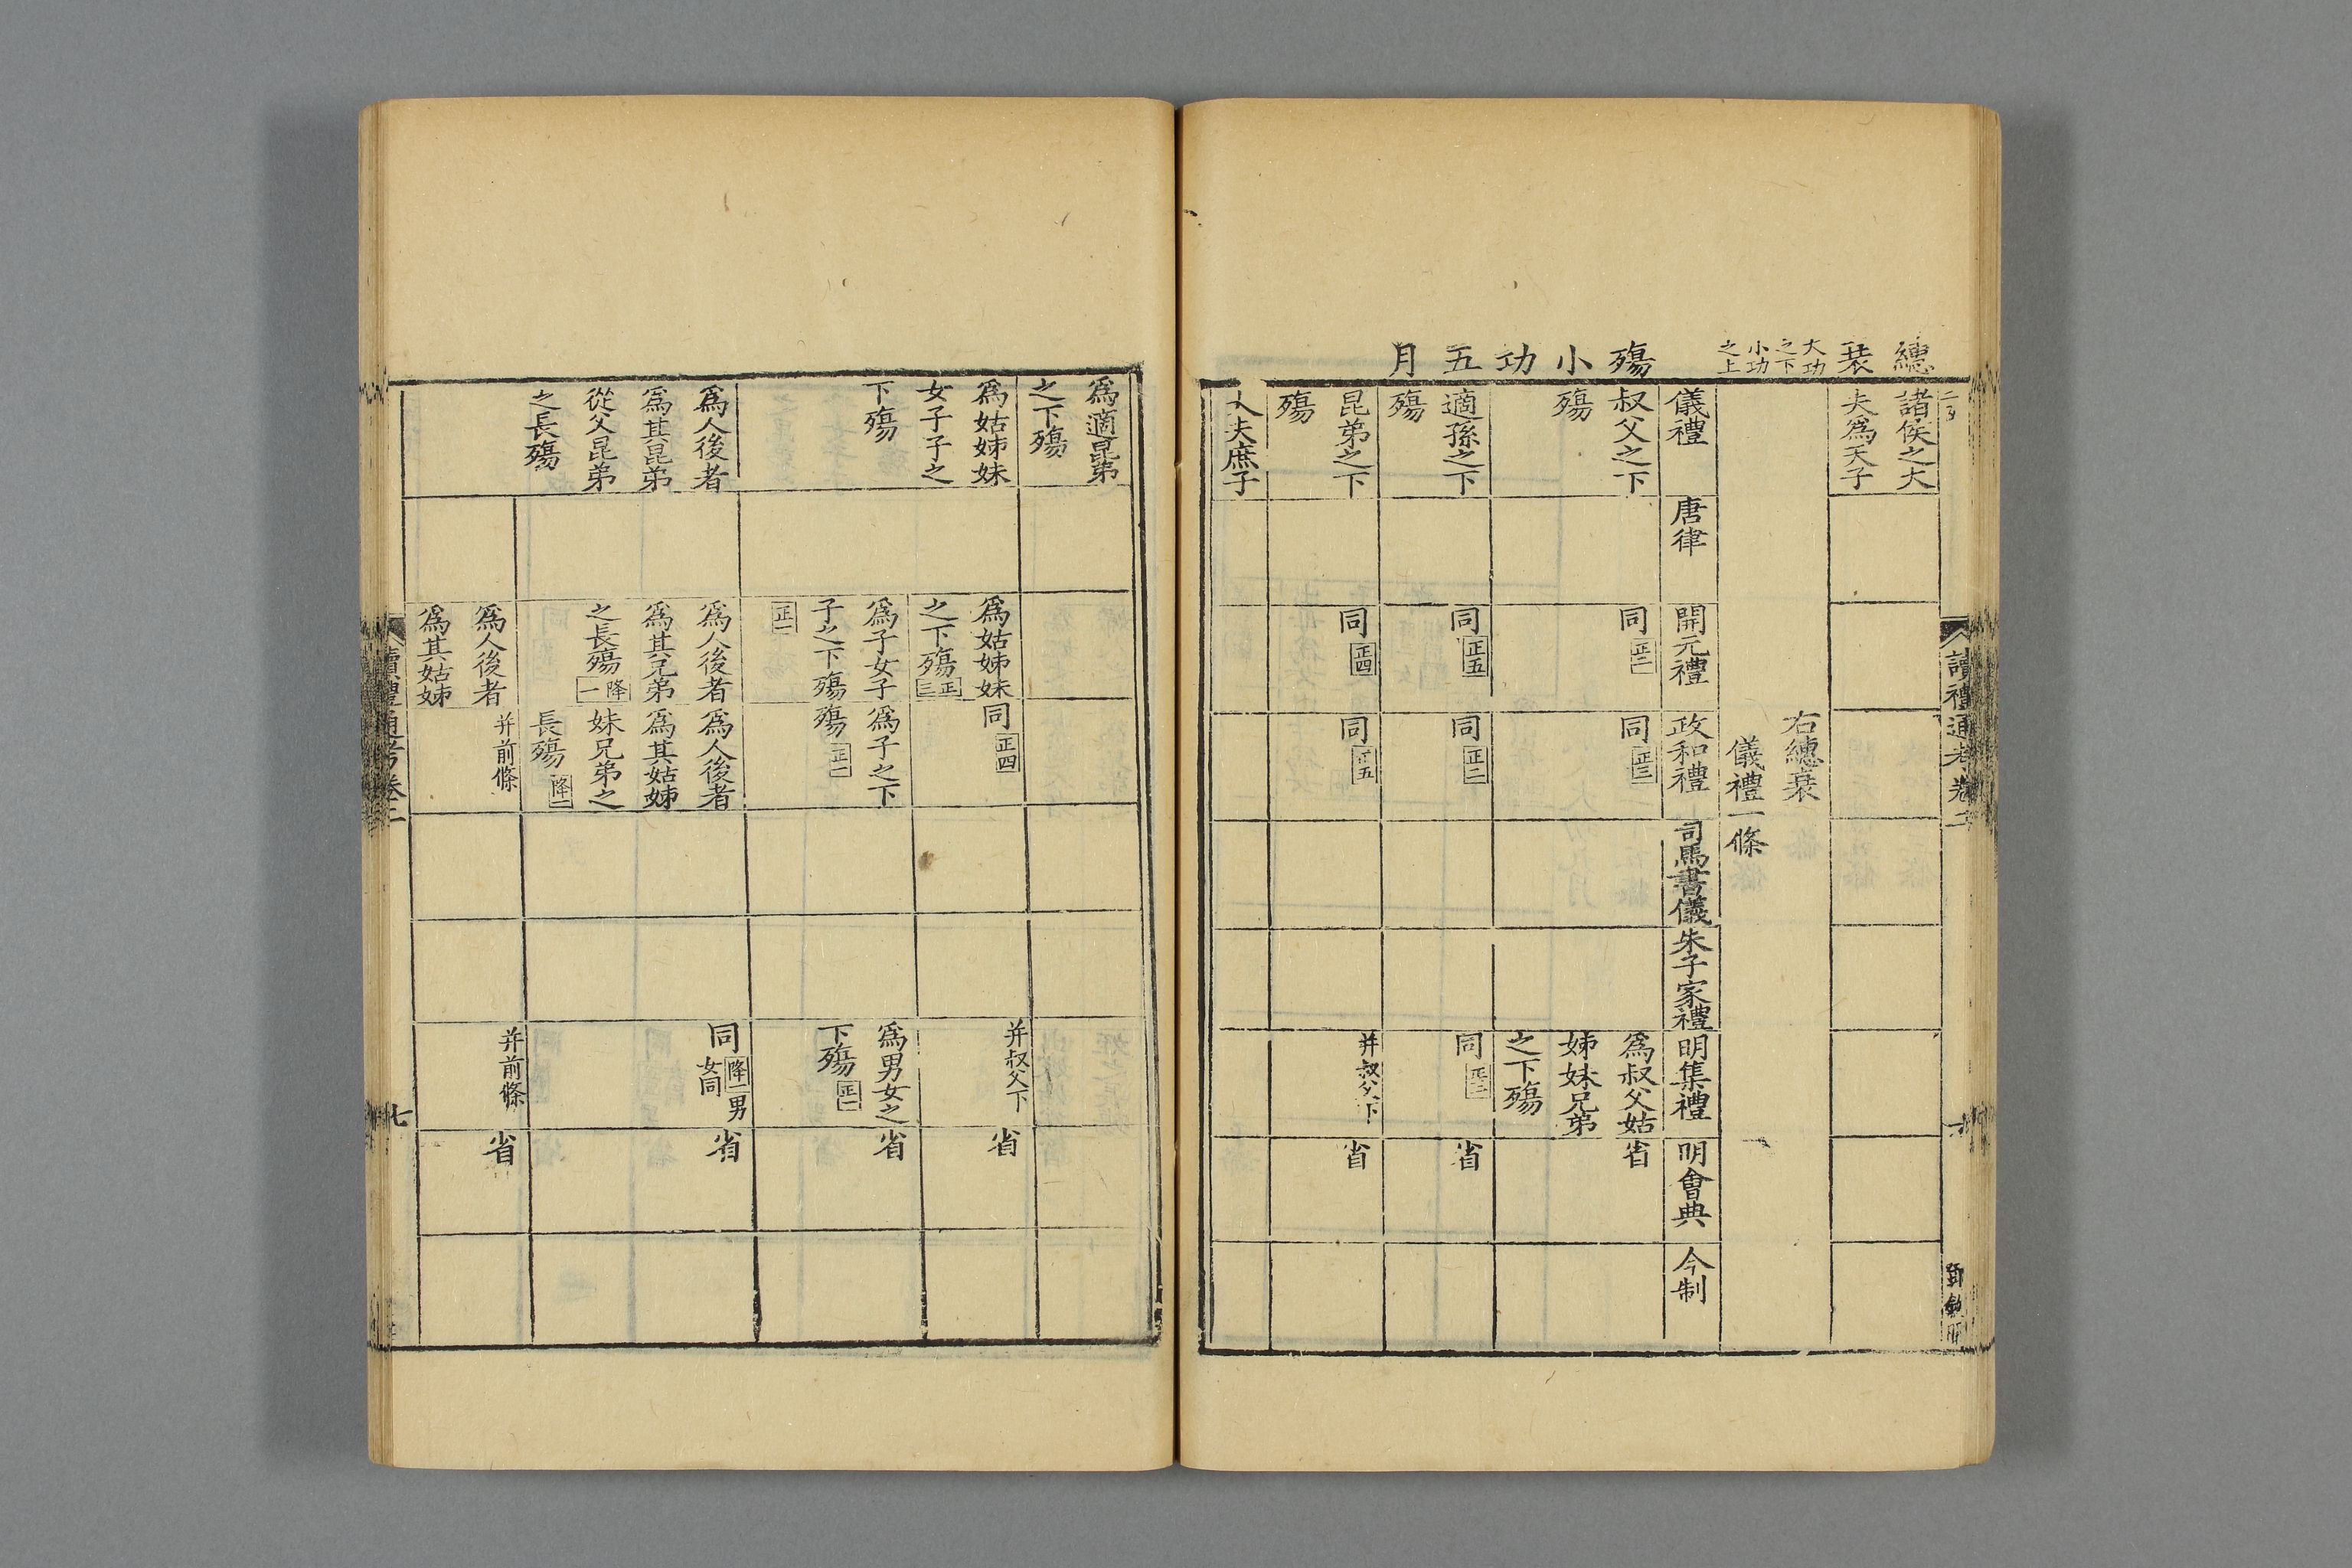 繐
衰
大功
之下
小功
之上
諸侯之大
夫為天子
右繐衰
儀禮一條
殤小功五月
儀禮
唐律
開元禮
政和禮
司馬書儀
朱子家禮
明集禮
明會典
今制
叔父之下
殤
同正二
同正三
為叔父姑
姊妹兄弟
之下殤
省
適孫之下
殤
同正五
同正二
同正二
省
昆弟之下
殤
同正四
同正五
并叔父下
省
大夫庶子
讀禮通考卷二
為適昆弟
之下殤
為姑姊妹
女子子之
下殤
為姑姊妹
之下殤正三
同正四
并叔父下
省
為子女子
子之下殤
正一
為子之下
殤正一
為男女之
下殤正一
省
為人後者
為其昆弟
從父昆弟
之長殤
為人後者
為其兄弟
之長殤降一
為人後者
為其姑姊
妹兄弟之
長殤降一
同降一男
女同
省
為人後者
為其姑姊
并前條
并前條
省
讀禮通考卷二
七